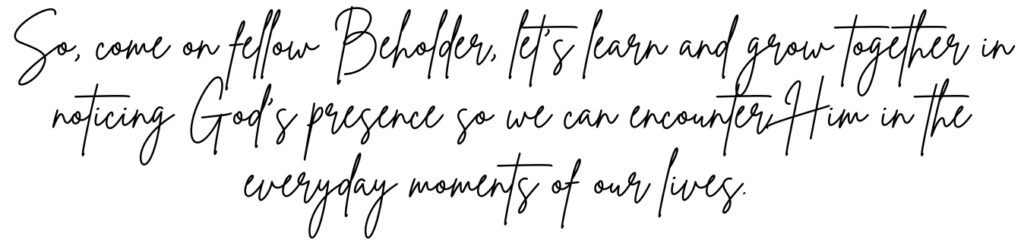 So, come on fellow Beholder, let's learn and grow together in
noticing God's presence so we can encounter Him in the
everyday moments of our lives.